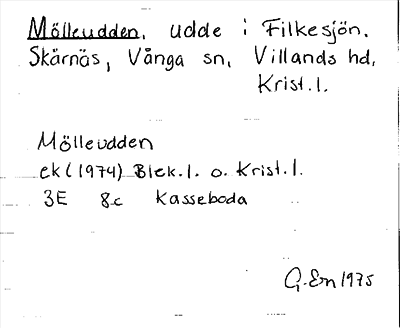 Mölleudden, udde i Filkesjön.
Skärnäs, Vånga sn, Villands hd,
Krist. l.
Mölleudden
ek (1974) Blek. l. o. Krist. l.
3E 8c Kasseboda
G. En 1975